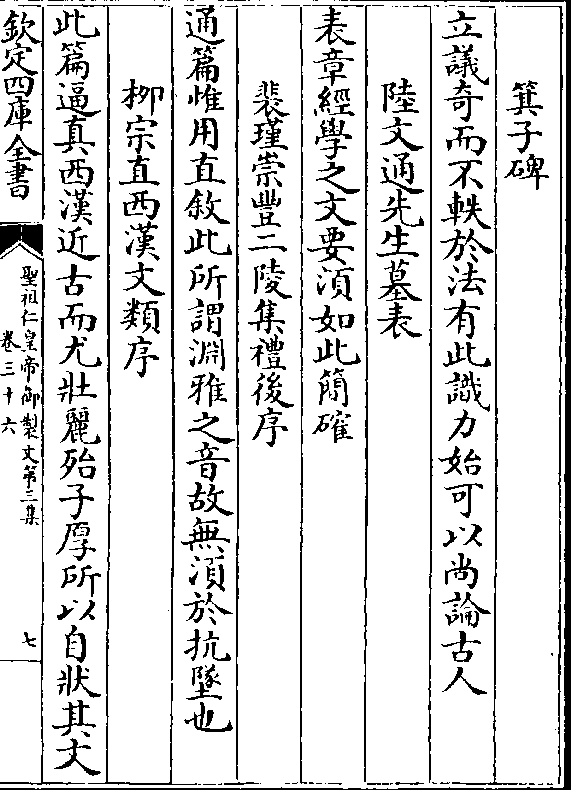 箕子碑
立議奇而不軼於法有此識力始可以尚論古人
陸文通先生墓表
表章經學之文要須如此簡確
裴瑾崇豐二陵集禮後序
通篇惟用直敘此所謂淵雅之音故無須於抗墜也
柳宗直西漢文類序
此篇逼真西漢近古而尤壯麗殆子厚所以自狀其文
欽定四庫全書
聖祖仁皇帝御製文第三集
卷三十六
七